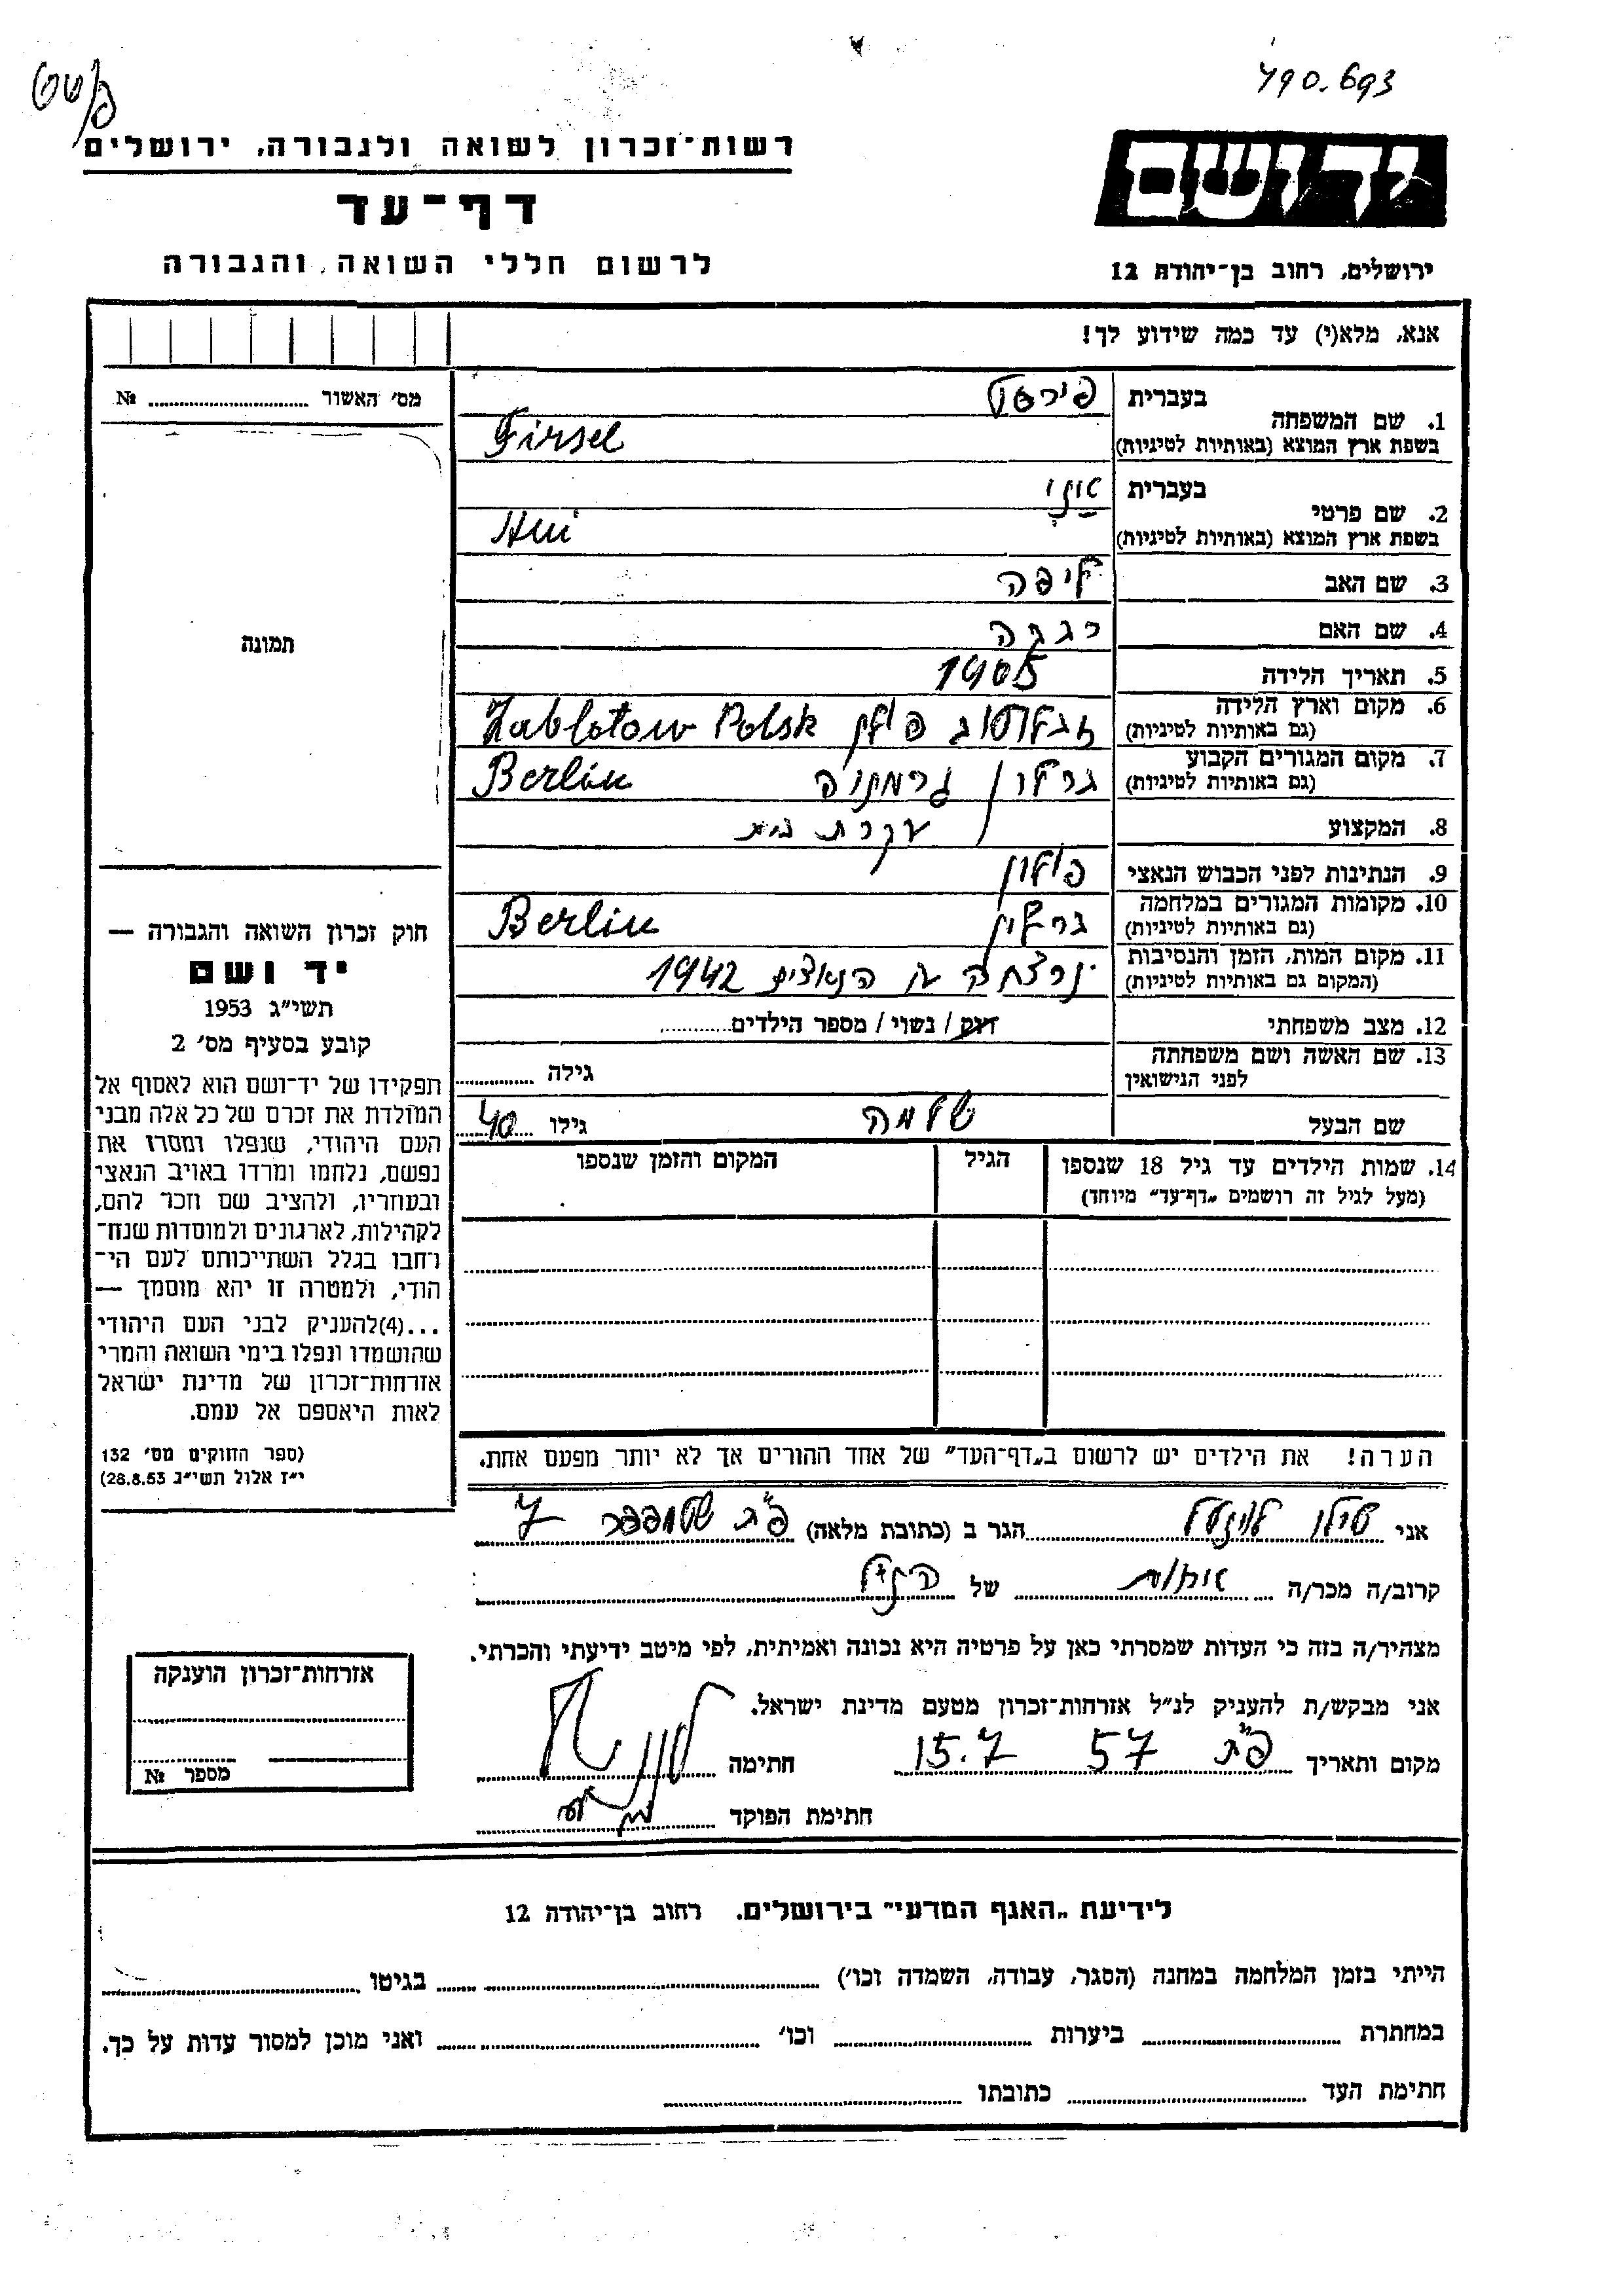 790.693
יד ושם
רשות־זכרון לשואה ולגבורה, ירושלים
דף־עד
לרשום חללי השואה והגבורה
ירושלים, רחוב בן־יהודה 12
אנא, מלא(י) עד כמה שידוע לך!
מס׳ האשור № ..........
1. שם המשפחה בעברית
בשפת ארץ המוצא (באותיות לטיניות) Firsel
2. שם פרטי בעברית
בשפת ארץ המוצא (באותיות לטיניות)
3. שם האב ליפה
4. שם האם
5. תאריך הלידה 1905
6. מקום וארץ הלידה (גם באותיות לטיניות) זבלוטוב פולין Zablotow Polsk
7. מקום המגורים הקבוע (גם באותיות לטיניות) ברלין גרמניה Berlin
8. המקצוע עקרת בית
9. הנתינות לפני הכבוש הנאצי פולין
10. מקומות המגורים במלחמה (גם באותיות לטיניות) ברלין Berlin
11. מקום המות, הזמן והנסיבות (המקום גם באותיות לטיניות) נרצחה הנאצים 1942
12. מצב משפחתי רווק / נשוי / מספר הילדים..........
13. שם האשה ושם משפחתה לפני הנישואין גילה ..........
שם הבעל שלמה גילו 40
14. שמות הילדים עד גיל 18 שנספו (מעל לגיל זה רושמים „דף־עד” מיוחד) הגיל המקום והזמן שנספו
תמונה
חוק זכרון השואה והגבורה —
יד ושם
תשי״ג 1953
קובע בסעיף מס׳ 2
תפקידו של יד־ושם הוא לאסוף אל
המולדת את זכרם של כל אלה מבני
העם היהודי, שנפלו ומסרו את
נפשם, נלחמו ומרדו באויב הנאצי
ובעוזריו, ולהציב שם וזכר להם,
לקהילות, לארגונים ולמוסדות שנח־
רחבו בגלל השתייכותם לעם הי־
הודי, ולמטרה זו יהא מוסמך —
...(4)להעניק לבני העם היהודי
שהושמדו ונפלו בימי השואה והמרי
אזרחות־זכרון של מדינת ישראל
לאות היאספם אל עמם.
(ספר החוקים מס׳ 132
י״ז אלול תשי״ג 28.8.53)
הערה! את הילדים יש לרשום ב„דף־העד” של אחד ההורים אך לא יותר מפעם אחת.
אני הגר ב (כתובת מלאה) פ״ת 7
קרוב/ה מכר/ה אחות של
מצהיר/ה בזה כי העדות שמסרתי כאן על פרטיה היא נכונה ואמיתית, לפי מיטב ידיעתי והכרתי.
אני מבקש/ת להעניק לנ״ל אזרחות־זכרון מטעם מדינת ישראל.
מקום ותאריך פ״ת 57 15.7 חתימה
חתימת הפוקד
אזרחות־זכרון הוענקה
מספר №
לידיעת „האגף המדעי” בירושלים. רחוב בן־יהודה 12
הייתי בזמן המלחמה במחנה (הסגר, עבודה, השמדה וכו׳) .......... בגיטו ..........
במחתרת .......... ביערות .......... וכו׳ .......... ואני מוכן למסור עדות על כך.
חתימת העד .......... כתובתו ..........